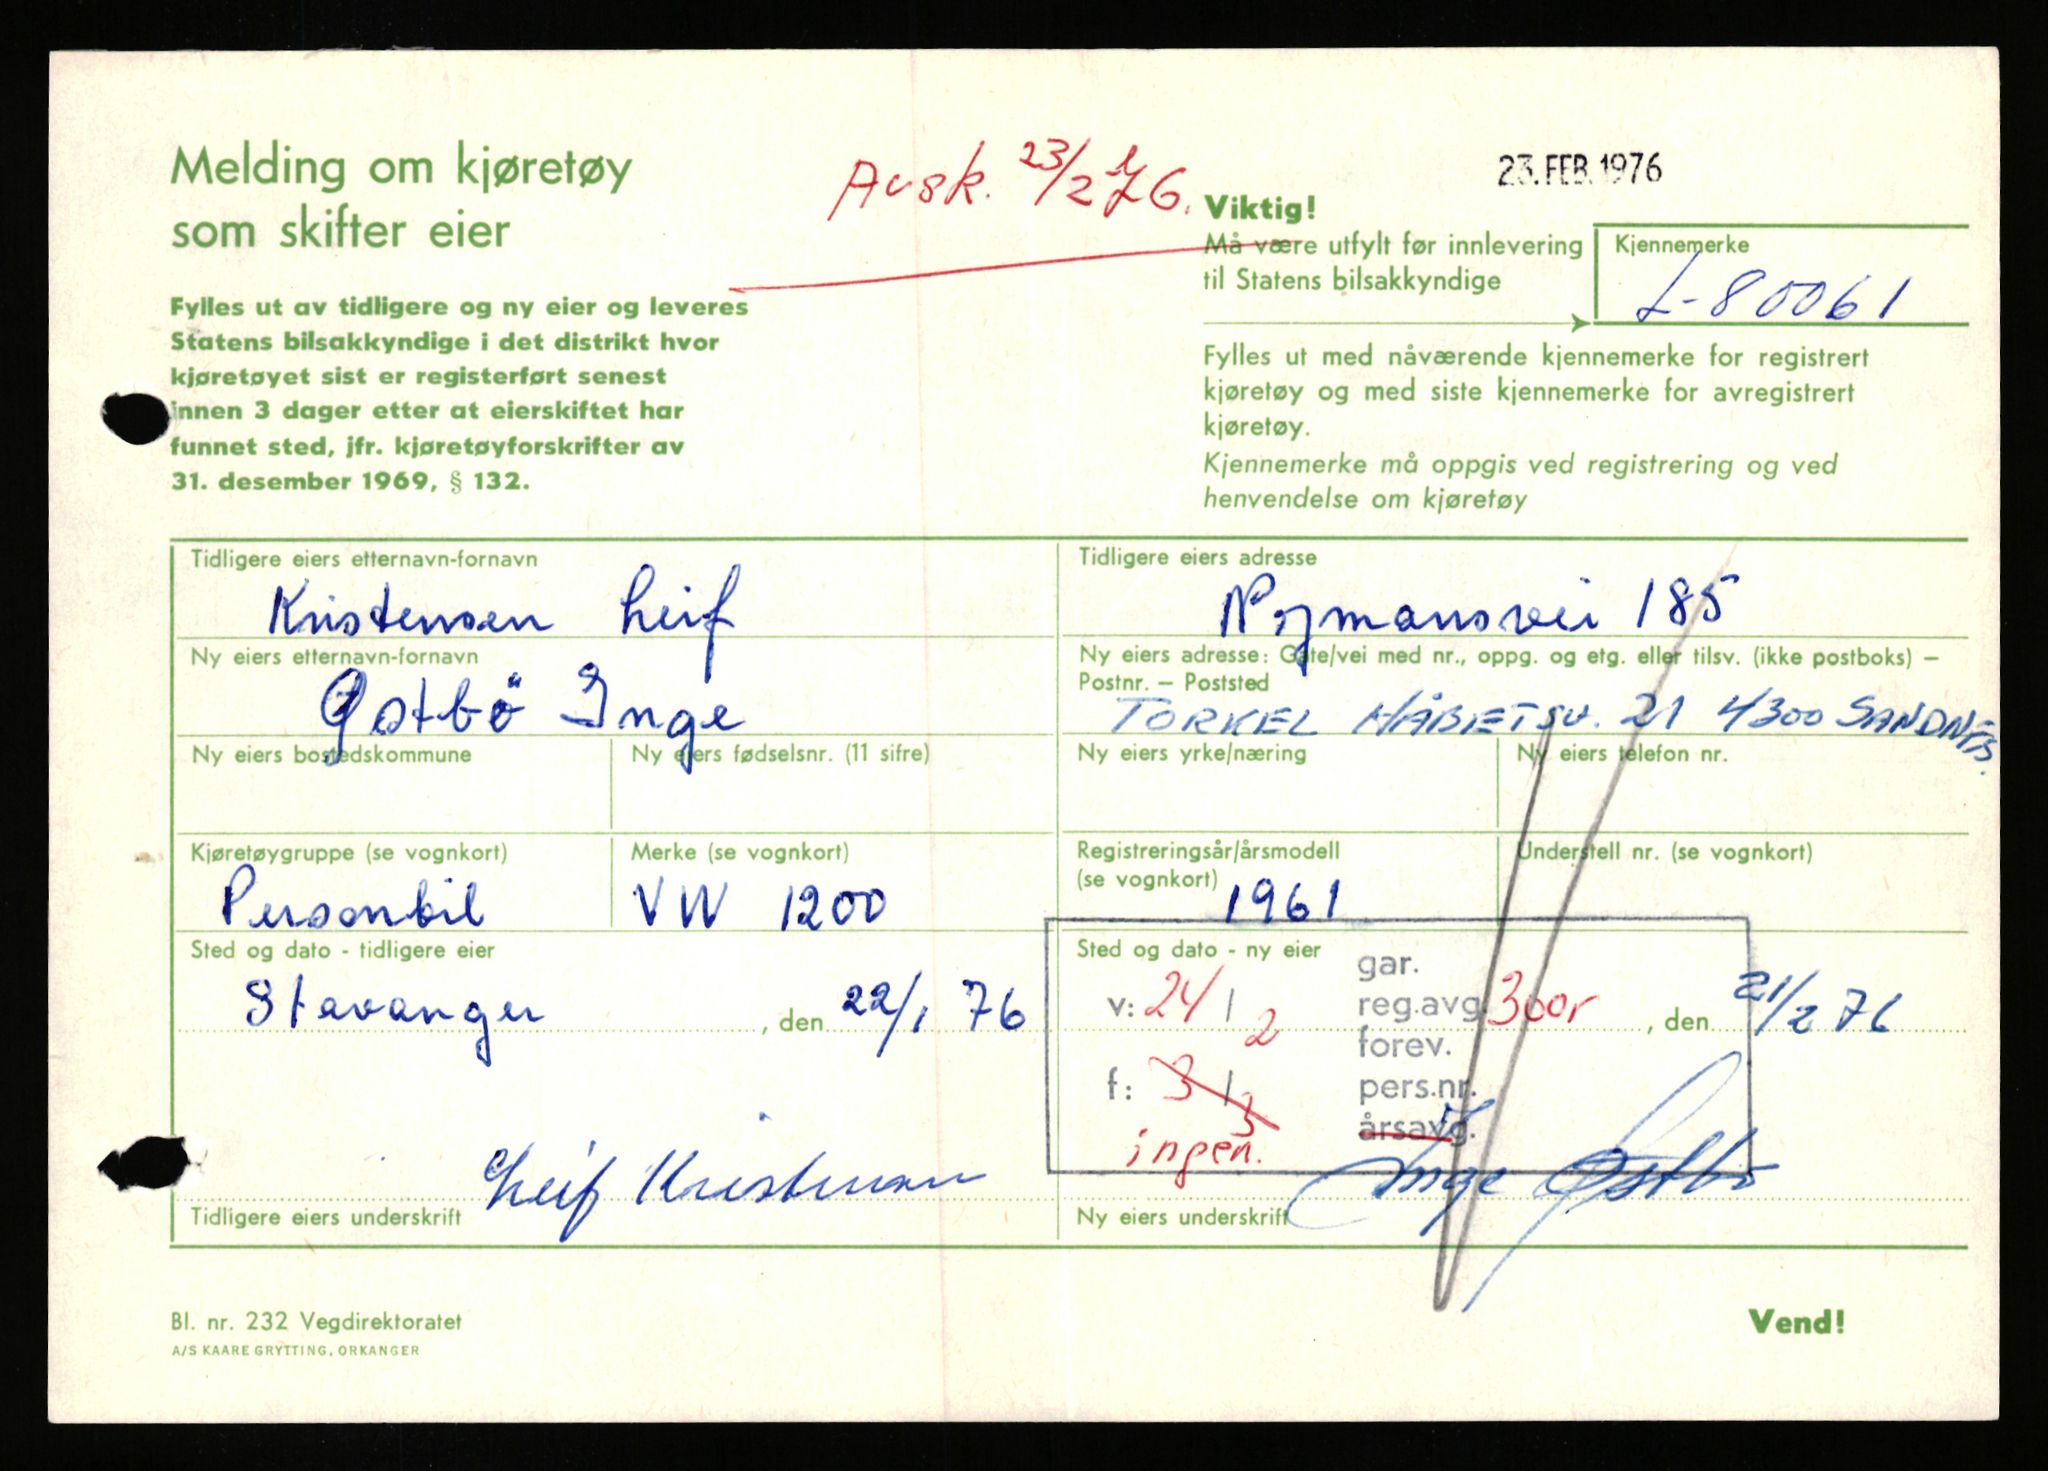 Melding om kjøretøy
som skifter eier
Avsk. 23/2 76.
23. FEB. 1976
Viktig!
Må være utfylt før innlevering
til Statens bilsakkyndige
Kjennemerke
L-80061
Fylles ut av tidligere og ny eier og leveres
Statens bilsakkyndige i det distrikt hvor
kjøretøyet sist er registerført senest
innen 3 dager etter at eierskiftet har
funnet sted, jfr. kjøretøyforskrifter av
31. desember 1969, § 132.
Fylles ut med nåværende kjennemerke for registrert
kjøretøy og med siste kjennemerke for avregistrert
kjøretøy.
Kjennemerke må oppgis ved registrering og ved
henvendelse om kjøretøy
Tidligere eiers etternavn-fornavn
Kristensen Leif
Tidligere eiers adresse
185
Ny eiers etternavn-fornavn
Østbö Inge
Ny eiers adresse: Gate/vei med nr., oppg. og etg. eller tilsv. (ikke postboks) –
Postnr. – Poststed
TORKEL HÅBETSV. 21 4300 SANDNES.
Ny eiers bostedskommune
Ny eiers fødselsnr. (11 sifre)
Ny eiers yrke/næring
Ny eiers telefon nr.
Kjøretøygruppe (se vognkort)
Personbil
Merke (se vognkort)
VW 1200
Registreringsår/årsmodell
(se vognkort)
1961
Understell nr. (se vognkort)
Sted og dato - tidligere eier
Stavanger, den 22/1 76
Sted og dato - ny eier
, den 21/2 76
v: 24/2
f: 3/3
ingen.
gar.
reg.avg. 300r
forev.
pers.nr.
årsavg.
Leif Kristensen
Tidligere eiers underskrift
Inge Østbö
Ny eiers underskrift
Bl. nr. 232 Vegdirektoratet
A/S KAARE GRYTTING, ORKANGER
Vend!